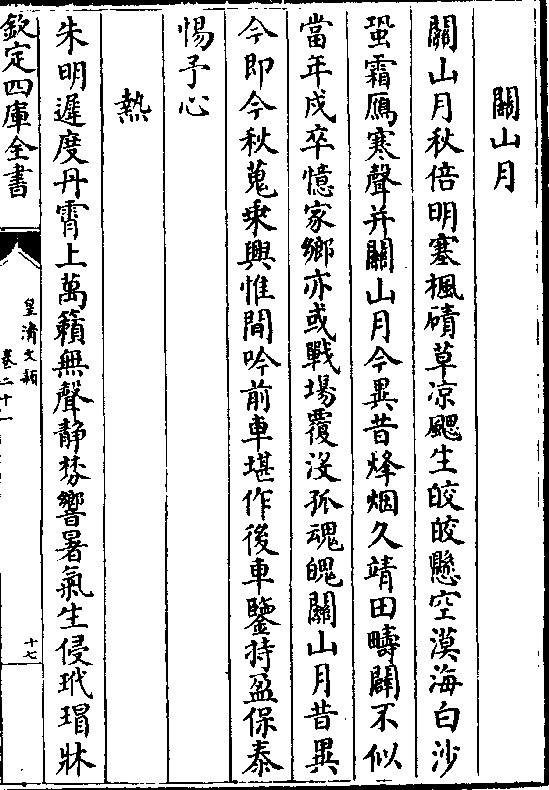 關山月
關山月秋倍明塞楓磧草凉颸生皎皎懸空漠海白沙
蛩霜鴈寒聲并關山月今異昔烽烟久靖田疇闢不似
當年戍卒憶家鄉亦或戰場覆沒孤魂魄關山月昔異
今即今秋蒐乗興惟間吟前車堪作後車鑒持盈保泰
惕予心
熱
朱明遲度丹霄上萬籟無聲静棼響暑氣生侵玳瑁牀
欽定四庫全書
皇清文穎
卷二十一
十七